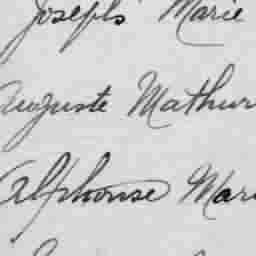 Joseph Marie
Auguste Mathur
Alphonse Mari